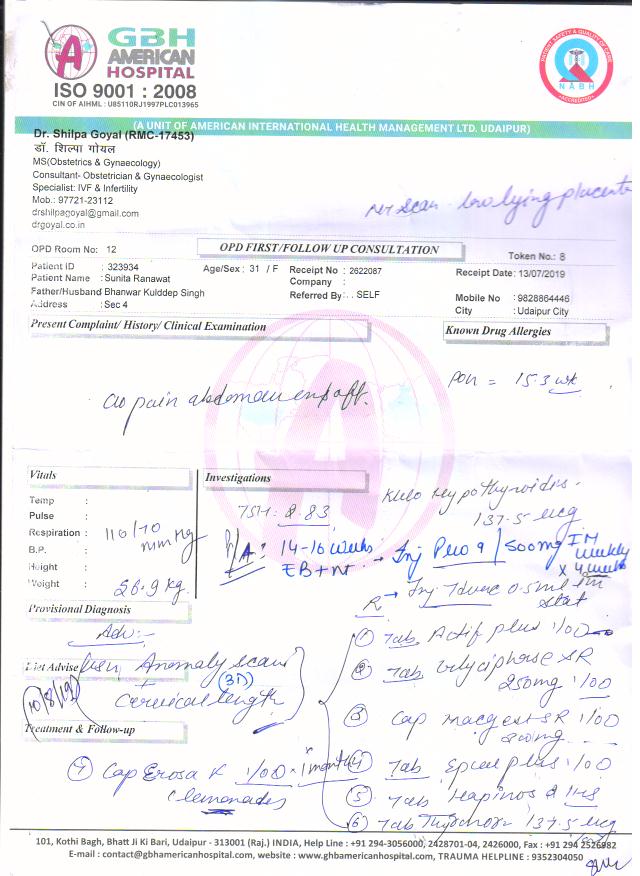 GBH
AMERICAN
HOSPITAL
ISO 9001 : 2008
CIN OF AIHML : U85110RJ1997PLC013965
PATIENT SAFETY & QUALITY OF CARE
NABH
ACCREDITATION
(A UNIT OF AMERICAN INTERNATIONAL HEALTH MANAGEMENT LTD. UDAIPUR)
Dr. Shilpa Goyal (RMC-17453)
डॉ. शिल्पा गोयल
MS(Obstetrics & Gynaecology)
Consultant- Obstetrician & Gynaecologist
Specialist: IVF & Infertility
Mob.: 97721-23112
drshilpagoyal@gmail.com
drgoyal.co.in
NT Scan - low lying placenta
OPD Room No: 12
OPD FIRST/FOLLOW UP CONSULTATION
Token No.: 8
Patient ID : 323934 Age/Sex : 31 / F Receipt No : 2622087 Receipt Date: 13/07/2019
Patient Name : Sunita Ranawat Company :
Father/Husband Bhanwar Kulddep Singh Referred By: . . SELF Mobile No : 9828864446
Address : Sec 4 City : Udaipur City
Present Complaint/ History/ Clinical Examination
Known Drug Allergies
POG = 15.3 wk
c/o pain abdomen on & off.
Vitals
Investigations
Temp :
Pulse :
Respiration :
110/70
mm Hg
B.P. :
Height :
Weight :
56.9 kg.
TSH: 2.83
K/c/o Hypothyroidis -
137.5 mcg
P/A: 14-16 weeks
→ Inj 9 / 500mg IM
weekly
x 4 weeks
R → Inj 0.5ml im
stat
Provisional Diagnosis
Adv:-
Diet Advise
Anomaly scan
(3D)
+ Cervical length
10/8/19
Treatment & Follow-up
① Tab Actif plus 1/OD
② Tab SR
250mg 1/OD
③ Cap SR 1/OD
④ Tab plus 1/OD
⑤ Tab 2 HS
⑥ Tab Thyronorm 137.5 mcg
⑦ Cap K 1/OD x 1 month
101, Kothi Bagh, Bhatt Ji Ki Bari, Udaipur - 313001 (Raj.) INDIA, Help Line : +91 294-3056000, 2428701-04, 2426000, Fax : +91 294 2526982
E-mail : contact@gbhamericanhospital.com, website : www.gbhamericanhospital.com, TRAUMA HELPLINE : 9352304050